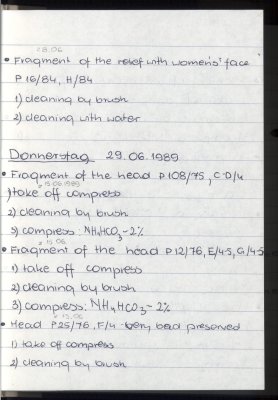 28.06
• Fragment of the relief with women's face
P 16/84, H/84
1) cleaning by brush
2) cleaning with water
Donnerstag 29.06.1989
• Fragment of the head P 108/75, C-D/4
* 15.06.1989
1) take off compress
2) cleaning by brush
3) compress: NH4HCO3 - 2%
* 15.06.
• Fragment of the head P 12/76, E/4-5, G/4-5
1) take off compress
2) cleaning by brush
3) compress: NH4HCO3 - 2%
* 15.06.
• Head P 25/76, F/4 - very bad preserved
1) take off compress
2) cleaning by brush